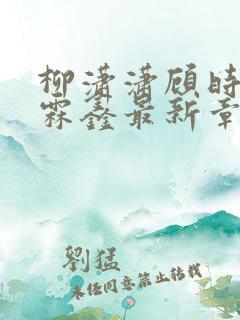 柳潇潇顾时
霖鑫最新章
劉猛
未经同意禁止转载